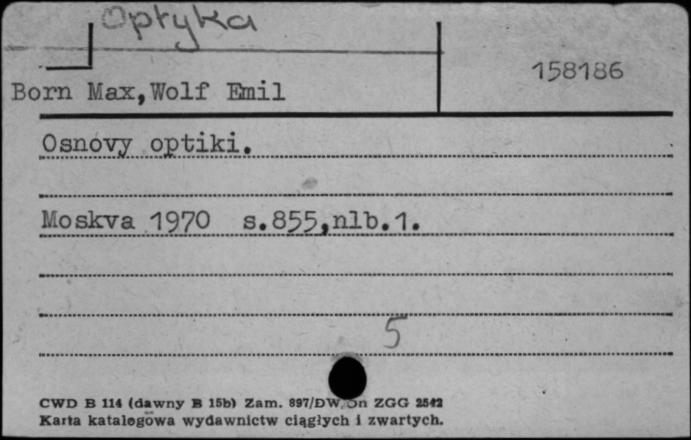 Optyka
158186
Born Max,Wolf Emil
Osnóvy optiki.
Moskva 1970 s.855,nlb.1.
5
CWD B 114 (dawny B 15b) Zam. 897/DW ZGG 2542
Karta katalogowa wydawnictw ciągłych i zwartych.